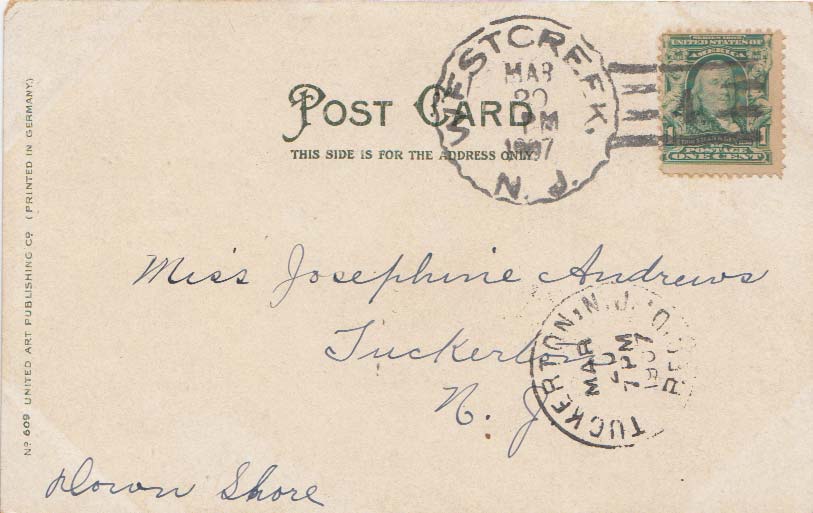 POST CARD
THIS SIDE IS FOR THE ADDRESS ONLY.
WEST CREEK,
N. J.
MAR
20
PM
1907
SERIES 1902
UNITED STATES OF
1 1
POSTAGE
ONE CENT
Miss Josephine Andrews
Tuckerton
N. J.
TUCKERTON, N. J.
REC'D.
MAR
20
7 PM
1907
Down Shore
Nº 609 UNITED ART PUBLISHING Cº (PRINTED IN GERMANY.)